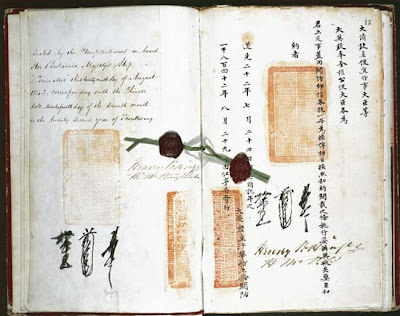 Sealed by the Plenipotentiaries on board
Her Britannic Majesty's Ship
Cornwallis this twenty ninth day of August
1842, corresponding with the Chinese
date, twenty fourth day of the seventh month
in the twenty second year of Taoukwang
Henry Pottinger
13
大清欽差便宜行事大臣等
大英欽奉全權公使大臣各爲
君上定事蓋用關防印信各執一冊爲據俾即日按照和約開載之條施行妥辦無礙矣要至和
約者
道光二十二年七月二十四日即英國記年之
一千八百四十二年八月二十九日由江寧省會行
大英君主
船上鈐關防
Henry Pottinger